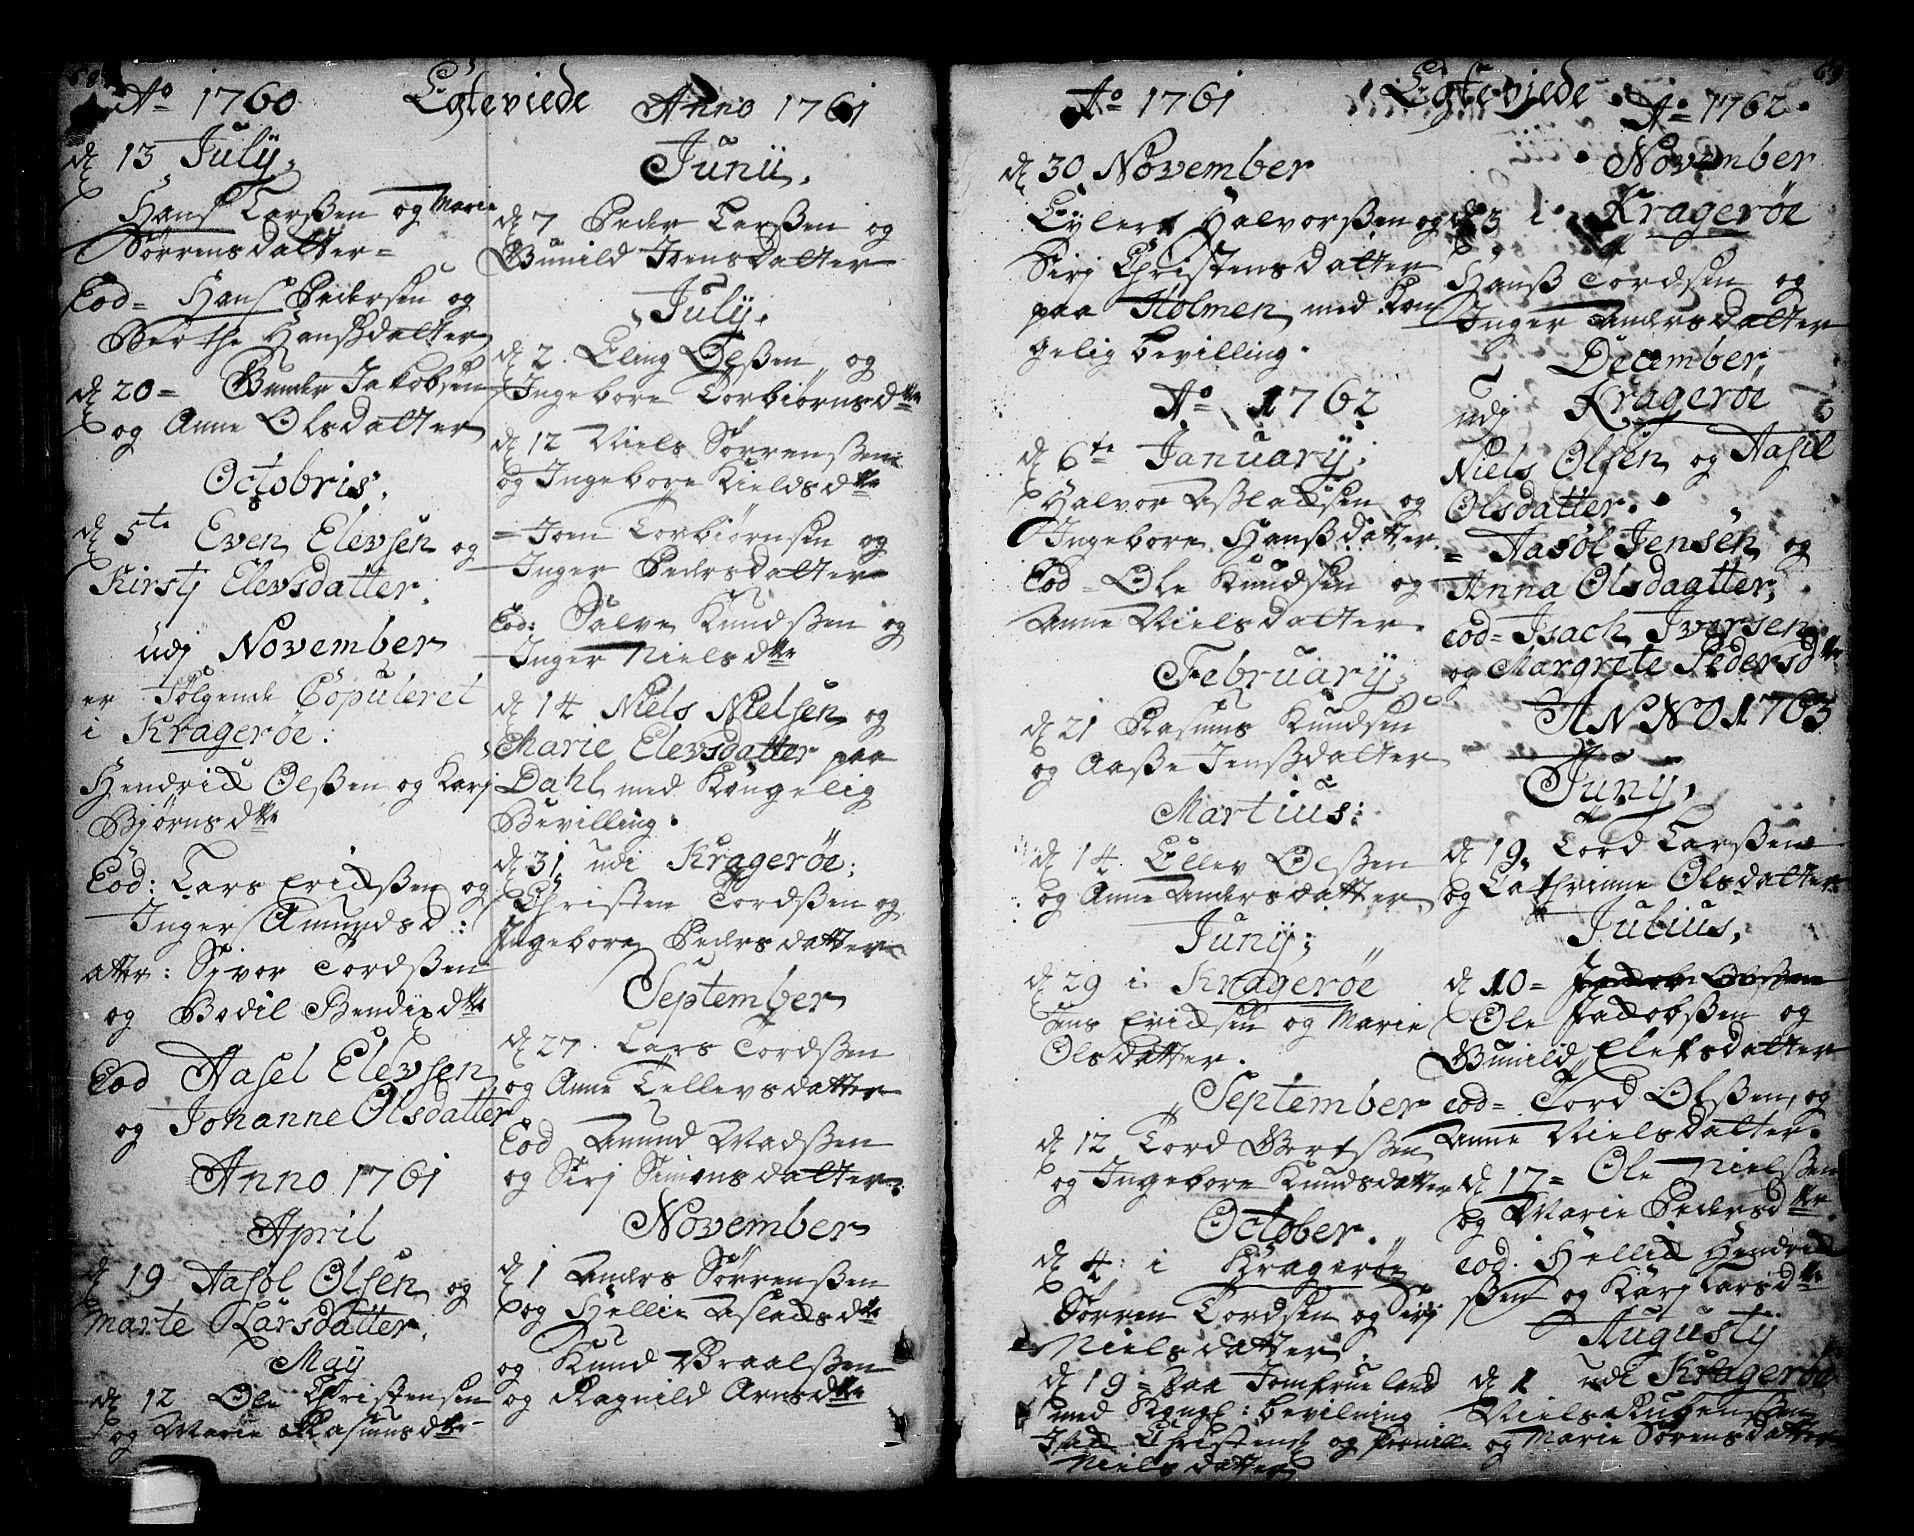 68
Ao 1760 Egteviede
d 13 July.
Hans Larßen og Marie
Sørrensdatter =
Eod = Hans Pedersen og
Berthe Hanßdatter
d 20 = Gunder Jakobsen
og Anne Olsdatter
Octobris.
d 5te Even Elevsen og
Kirstj Elevsdatter.
udj November
er følgende Copuleret
i Kragerøe:
Hendrik Olßen og Karj
Bjørnsdtter
Eod: Lars Erichßen og
Inger Amundsd:
atter: Sivor Tordßen
og Bodil Bendixdtter
Eod Aasel Elevsen
og Johanne Olsdatter
Anno 1761
April
d 19 Aasøl Olsen og
Marte Larsdatter.
May
d 12 Ole Christensen
og Marie Rasmusdtter
Anno 1761
Junii.
d 7 Peder Larßen og
Gunild Jensdatter
July.
d 2. Eling Olßen og
Ingebore Torbiørnsdtter
d 12 Niels Sørrenßen
og Ingebore Kieldsdtter
= Jom Torbiørnsen og
Inger Pedersdatter
Eod: Salve Knudßen og
Inger Nielsdtter
d 14 Niels Nielsen og
Marie Elevsdatter paa
Dahl med Kongelig
Bevilling.
d 31 udi Kragerøe:
Christen Tordßen og
Ingebore Pedersdatter
September
d 27. Lars Tordßen
og Anne Tellevsdatter
Eod Amund Madßen
og Sirj Simonsdatter
November
d 1 Anders Sørrenßen
og Hellie Aslaksdtter
og Knud Braalßen
og Ragnild Arnsdtter
69
Ao 1761 Egteviede
d 30 November
Eylert Halvorßen og
Sirj Christensdatter
paa Holmen med Kon
gelig bevilling.
Ao 1762
d 6te January.
Halvor Aßlaksen og
Ingebore Hanßdatter
Eod = Ole Knudsen og
Anne Nielsdatter.
February.
d 21 Rasmus Knudsen
og Aaße Jenßdatter
Martius:
d 14. Ellev Olßen
og Anne Andersdatter
Juny;
d 29 i Kragerøe
Jens Erichsen og Marie
Olsdatter.
September
d 12 Tord Gertßen
og Ingebore Knudsdatter
October.
d 4 i Kragerøe
Sørren Tordsen og Sirj
Nielsdatter.
d 19 = paa Jomfrueland
med Kongl: bevilning
Isak Christens og Pernille
Nielsdatter
Ao 1762.
November
d 3 i Kragerøe
Hanß Tordsen og
Inger Andersdatter
December
udj Kragerøe
Niels Olsen og Aasil
Olsdatter.
= Aasøl Jensen og
Anna Olsdaatter,
eod = Isach Iversen
og Margrete Pedersdtter
ANNO 1763
Juny,
d 19. Tord Larßen
og Cathrinne Olsdatter
Julius,
d 10 = Jakob Olsßen
Ole Jakobßen og
Gunild Elefsdatter
eod = Tord Olßen, og
Anne Nielsdatter.
d 17 = Ole Nielßen
og Marie Pedersdtter
eod. Hellik Hendrik
ßen og Karj Larsdtter
Augustj
d 1 udi Kragerøe
Niels Rubenßen
og Marie Sørensdatter